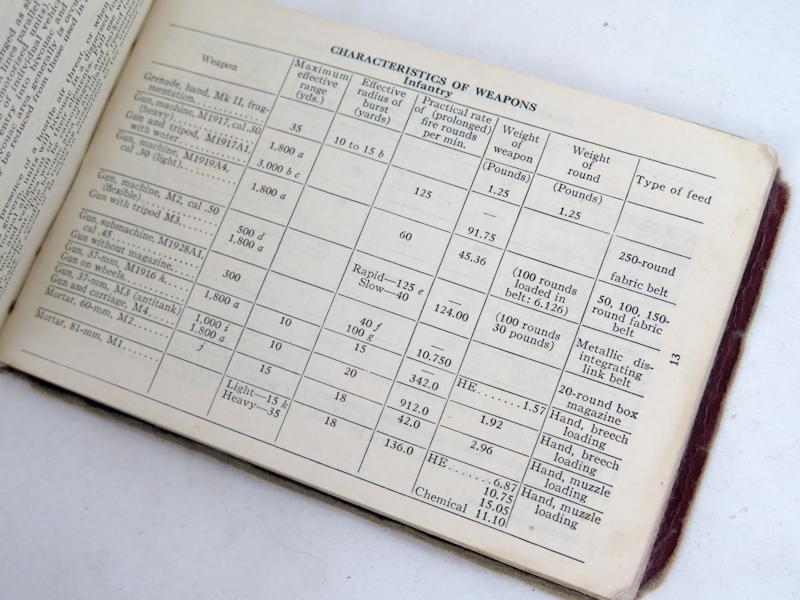 CHARACTERISTICS OF WEAPONS
Infantry
Weapon
Maximum
effective
range
(yds.)
Effective
radius of
burst
(yards)
Practical rate
of (prolonged)
fire rounds
per min.
Weight
of
weapon
(Pounds)
Weight
of
round
(Pounds)
Type of feed
Grenade, hand, Mk II, frag-
mentation
35
10 to 15 b
1.25
1.25
Gun, machine, M1917, cal .30
(heavy)
1,800 a
125
—
250-round
Gun and tripod, M1917A1,
with water
3,000 b c
91.75
fabric belt
Gun, machine, M1919A4,
cal .30 (light)
1,800 a
60
45.36
(100 rounds
loaded in
belt: 6.126)
50, 100, 150-
round fabric
belt
Gun, machine, M2, cal .50
(flexible)
500 d
1,800 a
Rapid—125 e
Slow—40
—
(100 rounds
30 pounds)
Metallic dis-
integrating
link belt
Gun with tripod M3
124.00
Gun, submachine, M1928A1,
cal .45
300
40 f
100 g
—
20-round box
magazine
Gun without magazine
10.750
Gun, 37-mm, M1916 k
1,800 a
10
15
—
HE 1.57
Hand, breech
loading
Gun on wheels
342.0
Gun, 37-mm, M3 (antitank)
1,000 i
10
20
1.92
Hand, breech
loading
Gun and carriage, M4
1,800 a
912.0
Mortar, 60-mm, M2
15
18
42.0
2.96
Hand, muzzle
loading
Mortar, 81-mm, M1
j
Light—15 k
Heavy—35
18
136.0
HE 6.87
10.75
15.05
Chemical 11.10
Hand, muzzle
loading
13